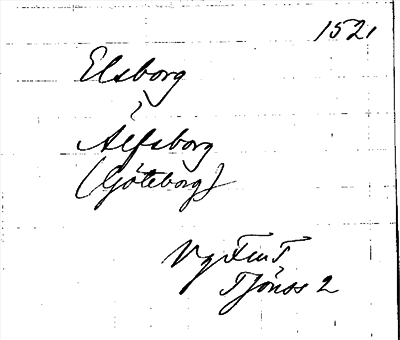 1521
Elsborg
Älfsborg
(Göteborg)
Vg FmT
Tjönss 2